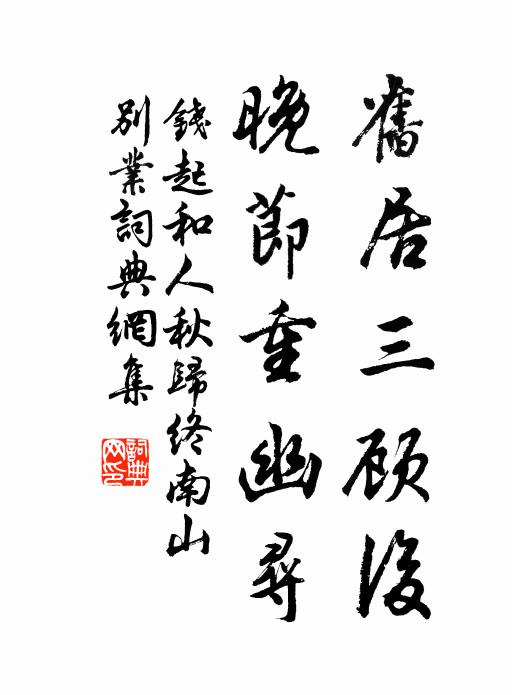 舊居三顧後
晚節重幽尋
錢起和人秋歸終南山
別業詞典網集
詞典
網印